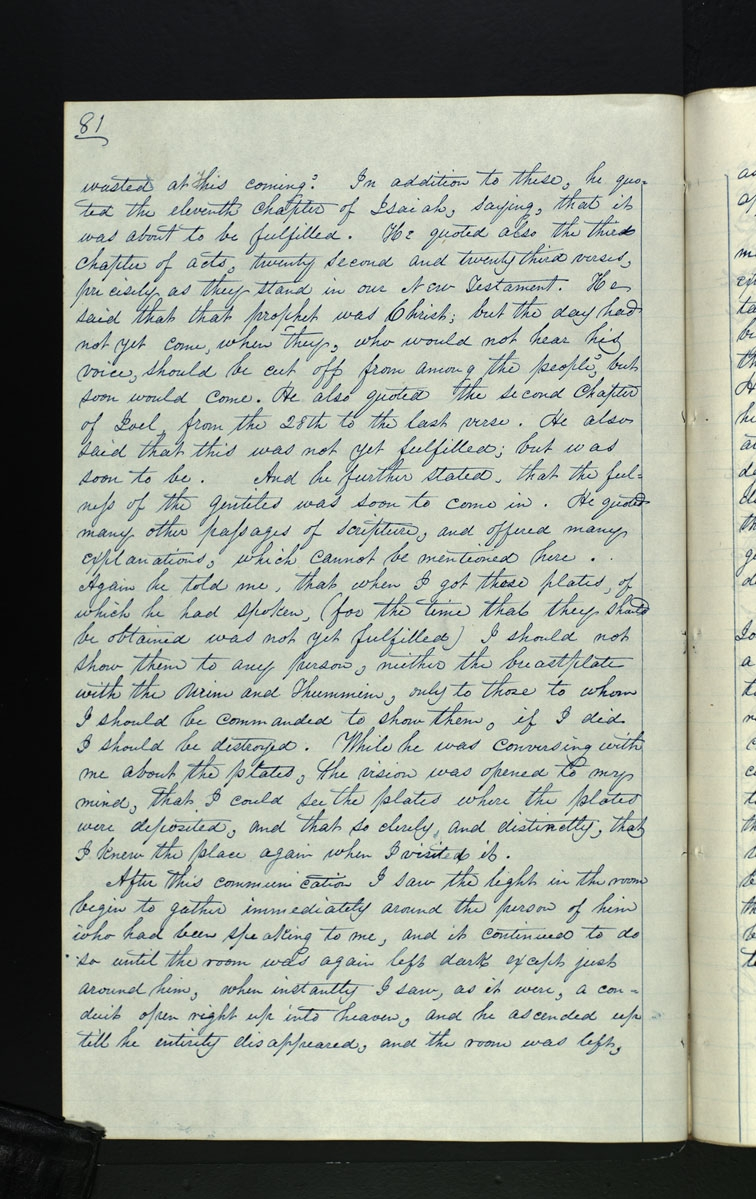 81
wasted at his coming? In addition to these, he quo=
ted the eleventh chapter of Isaiah, saying, that it
was about to be fulfilled. He quoted also the third
chapter of acts, twenty second and twenty third verses,
precisely as they stand in our New Testament. He
said that that prophet was Christ; but the day had
not yet come, when "they, who would not hear his
voice, should be cut off from among the people," but
soon would come. He also quoted the second Chapter
of Joel, from the 28th to the last verse. He also
said that this was not yet fulfilled; but was
soon to be. And he further stated, that the ful=
ness of the gentiles was soon to come in. He quoted
many other passages of scripture, and offered many
explanations, which cannot be mentioned here.
Again he told me, that when I got those plates, of
which he had spoken, (for the time that they should
be obtained was not yet fulfilled) I should not
show them to any person, niether the breastplate
with the Urim and Thummim, only to those to whom
I should be commanded to show them, if I did
I should be distroyed. While he was conversing with
me about the plates, the vision was opened to my
mind, that I could see the plates where the plates
were deposited, and that so clerely and distinctly, that
I knew the place again when I visited it.
After this communication I saw the light in the room
begin to gether immediately around the person of him
who had been speaking to me, and it continued to do
so until the room was again left dark except just
around him, when instantly I saw, as it were, a con=
duit open right up into heaven, and he ascended up
till he entirely disappeared, and the room was left,